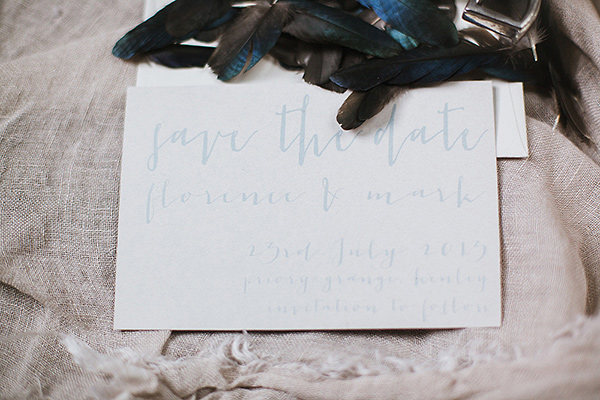 save the date
florence & mark
23rd July 2015
priory grange, henley
invitation to follow